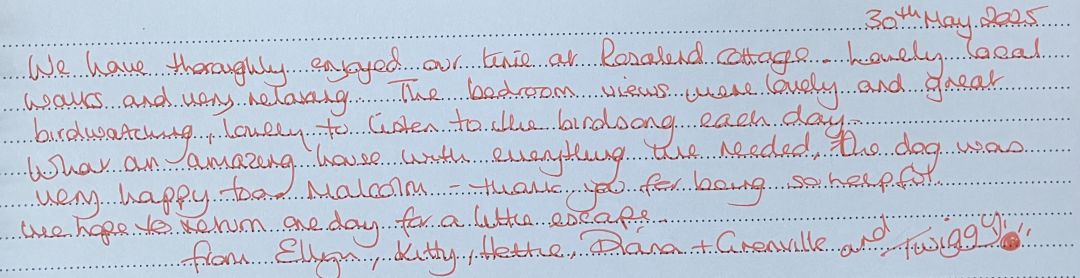 30th May 2025
We have thoroughly enjoyed our time at Rosalend cottage. Lovely local
walks and very relaxing. The bedroom views were lovely and great
birdwatching, lovely to listen to the birdsong each day.
What an amazing house with everything we needed, the dog was
very happy too. Malcolm - thank you for being so helpful
we hope to return one day for a little escape.
from Ellyn, Kitty, Hettie, Diana + Grenville and Twiggy